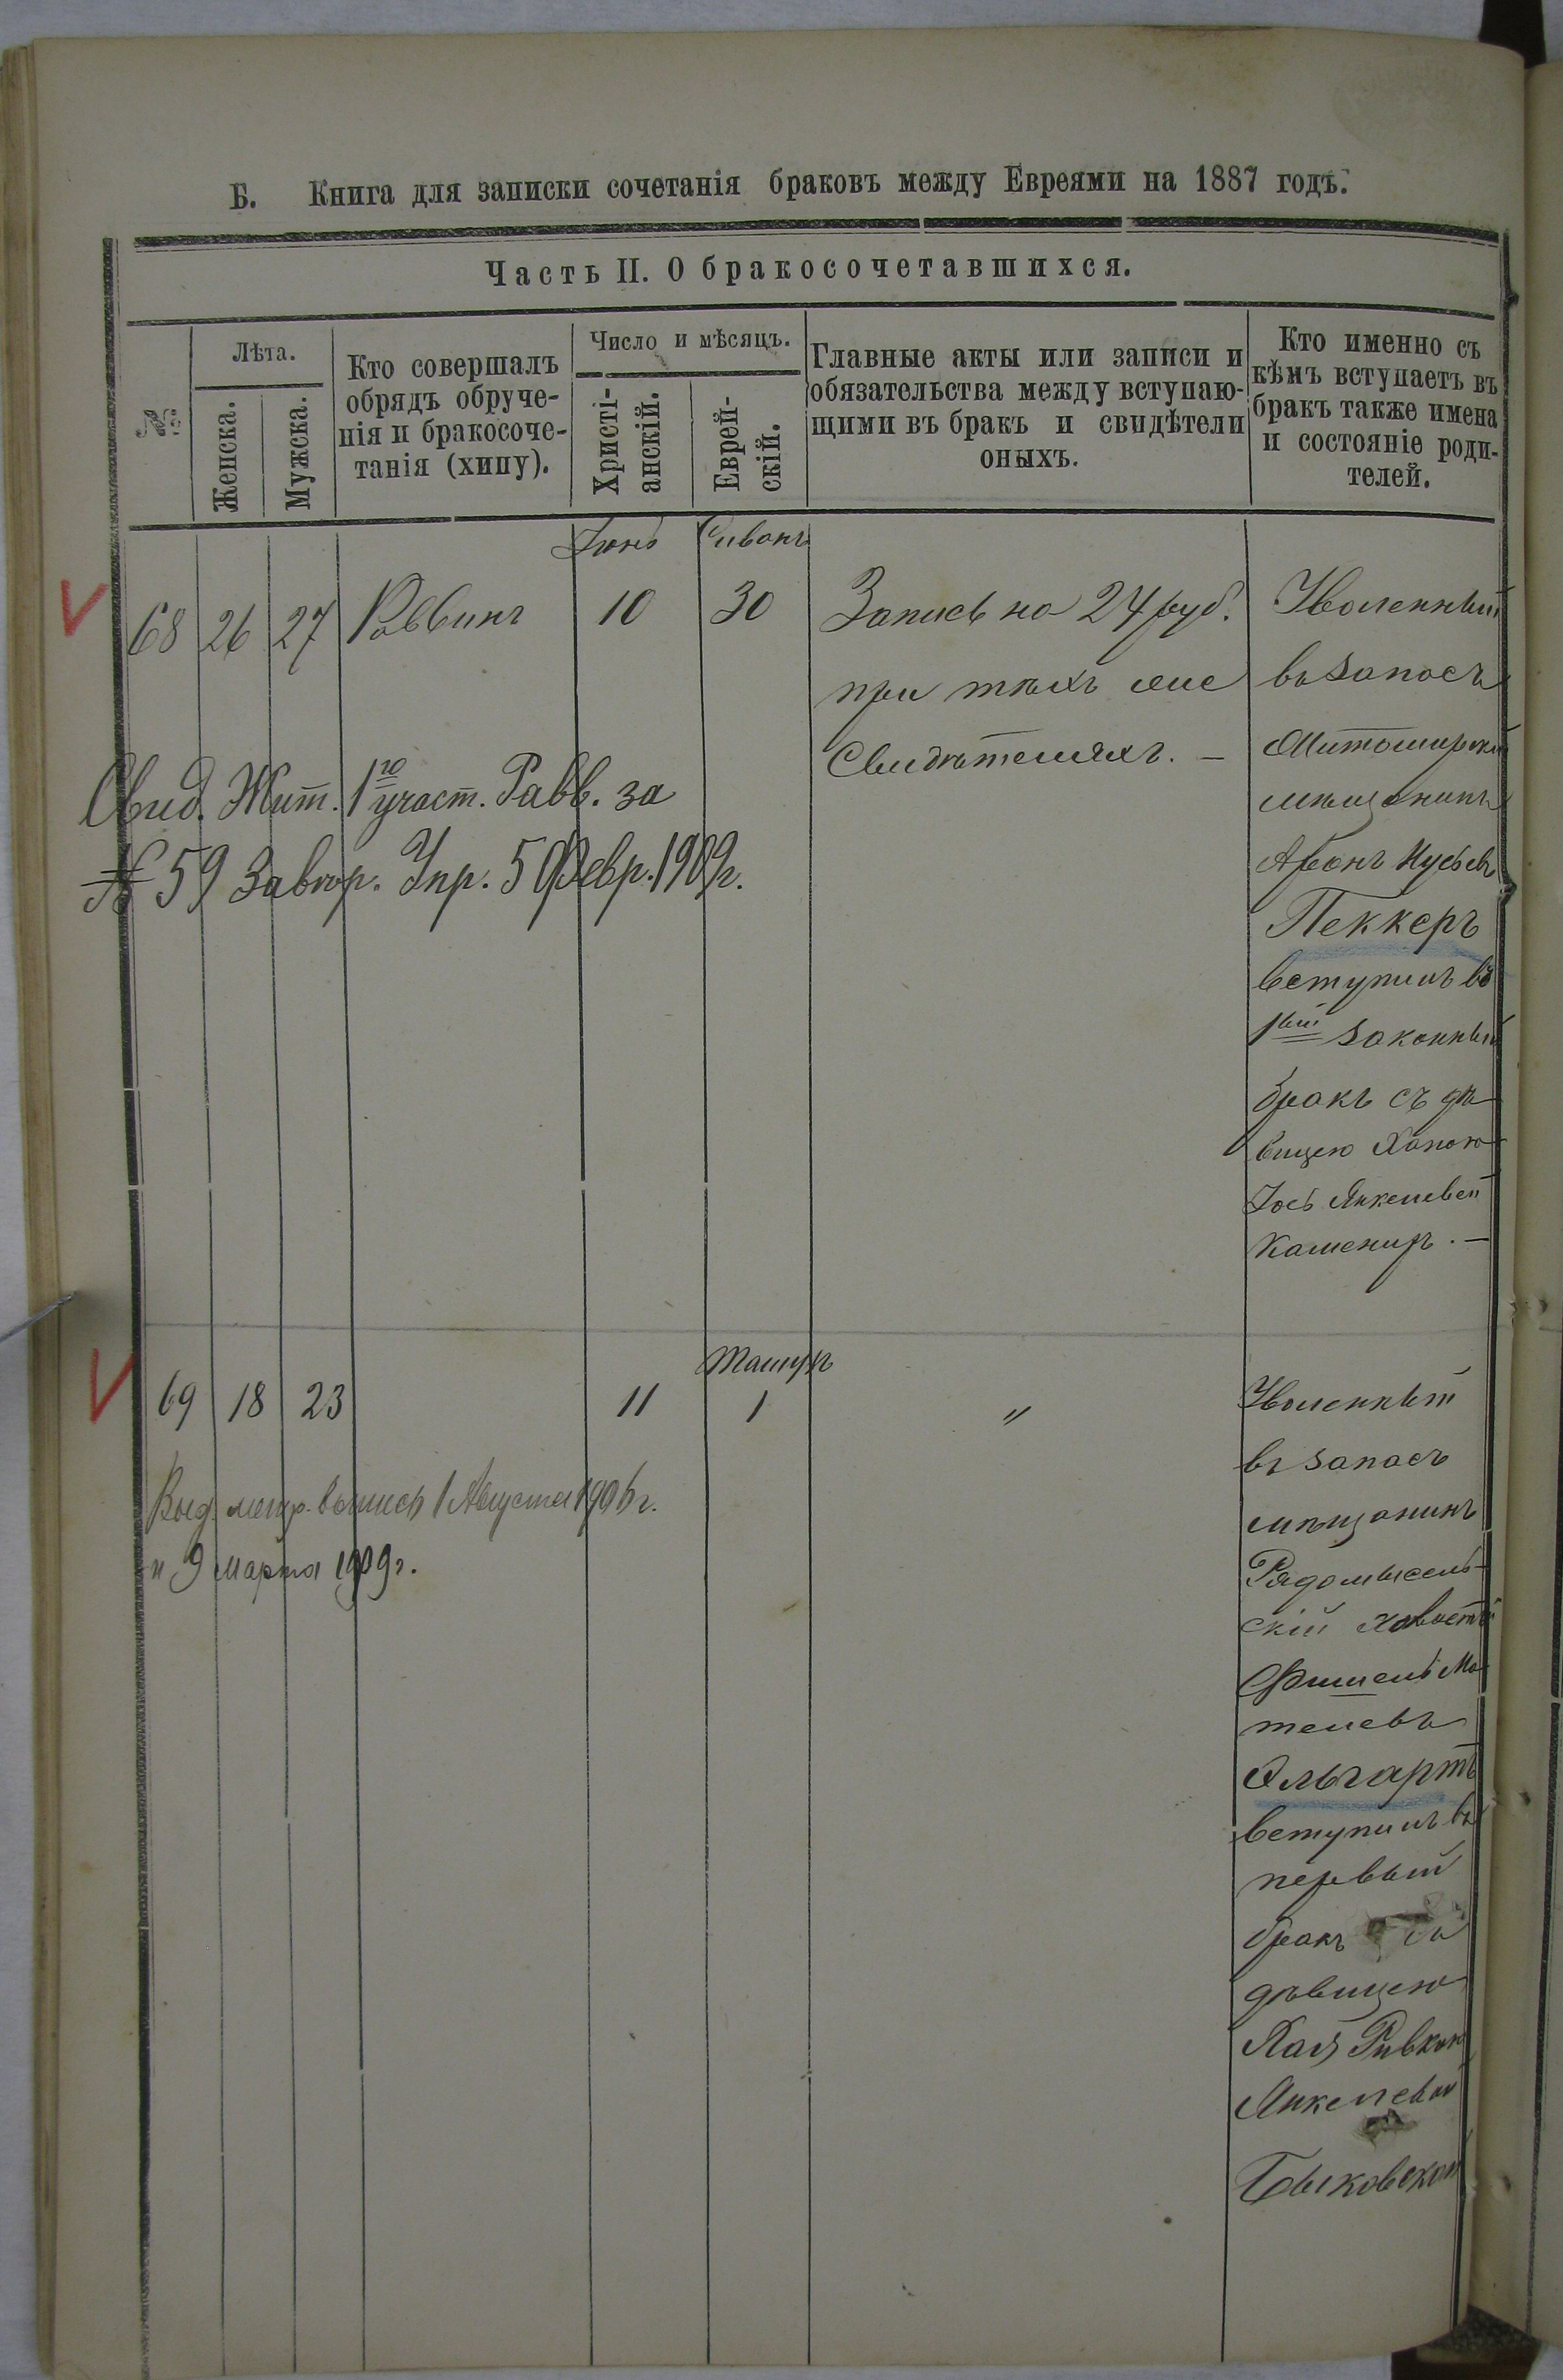 Б. Книга для записки сочетанія браковъ между Евреями на 1887 годъ.
Часть II. О бракосочетавшихся.
№
Лѣта.
Женска.
Мужска.
Кто совершалъ
обрядъ обруче-
нія и бракосоче-
танія (хипу).
Число и мѣсяцъ.
Христі-
анскій.
Еврей-
скій.
Главные акты или записи и
обязательства между вступаю-
щими въ бракъ и свидѣтели
оныхъ.
Кто именно съ
кѣмъ вступаетъ въ
бракъ также имена
и состояніе роди-
телей.
Іюнь Сиванъ
68 26 27 Раввинъ 10 30
Запись на 24 руб.
при тѣхъ же
Свидѣтеляхъ. —
Уволенный
въ запасъ
Житомирскій
мѣщанинъ
Аронъ
Пеккеръ
вступилъ въ
1ый законный
бракъ съ дѣ-
вицею Ханою
Янкелевой
Камениръ. —
Свид. Жит. 1го участ. Равв. за
№ 59 Завѣр. Упр. 5 Февр. 1909г.
Тамузъ
69 18 23 11 1 "
Уволенный
въ запасъ
мѣщанинъ
Радомысель-
скій холостый
Фишель Мо-
телевъ
Ольгартъ
вступилъ въ
первый
бракъ съ
дѣвицею
Хаей Ривкою
Янкелевой
Быковской
Выд. метр. выпись 1 Августа 1906г.
и 9 Марта 1909г.